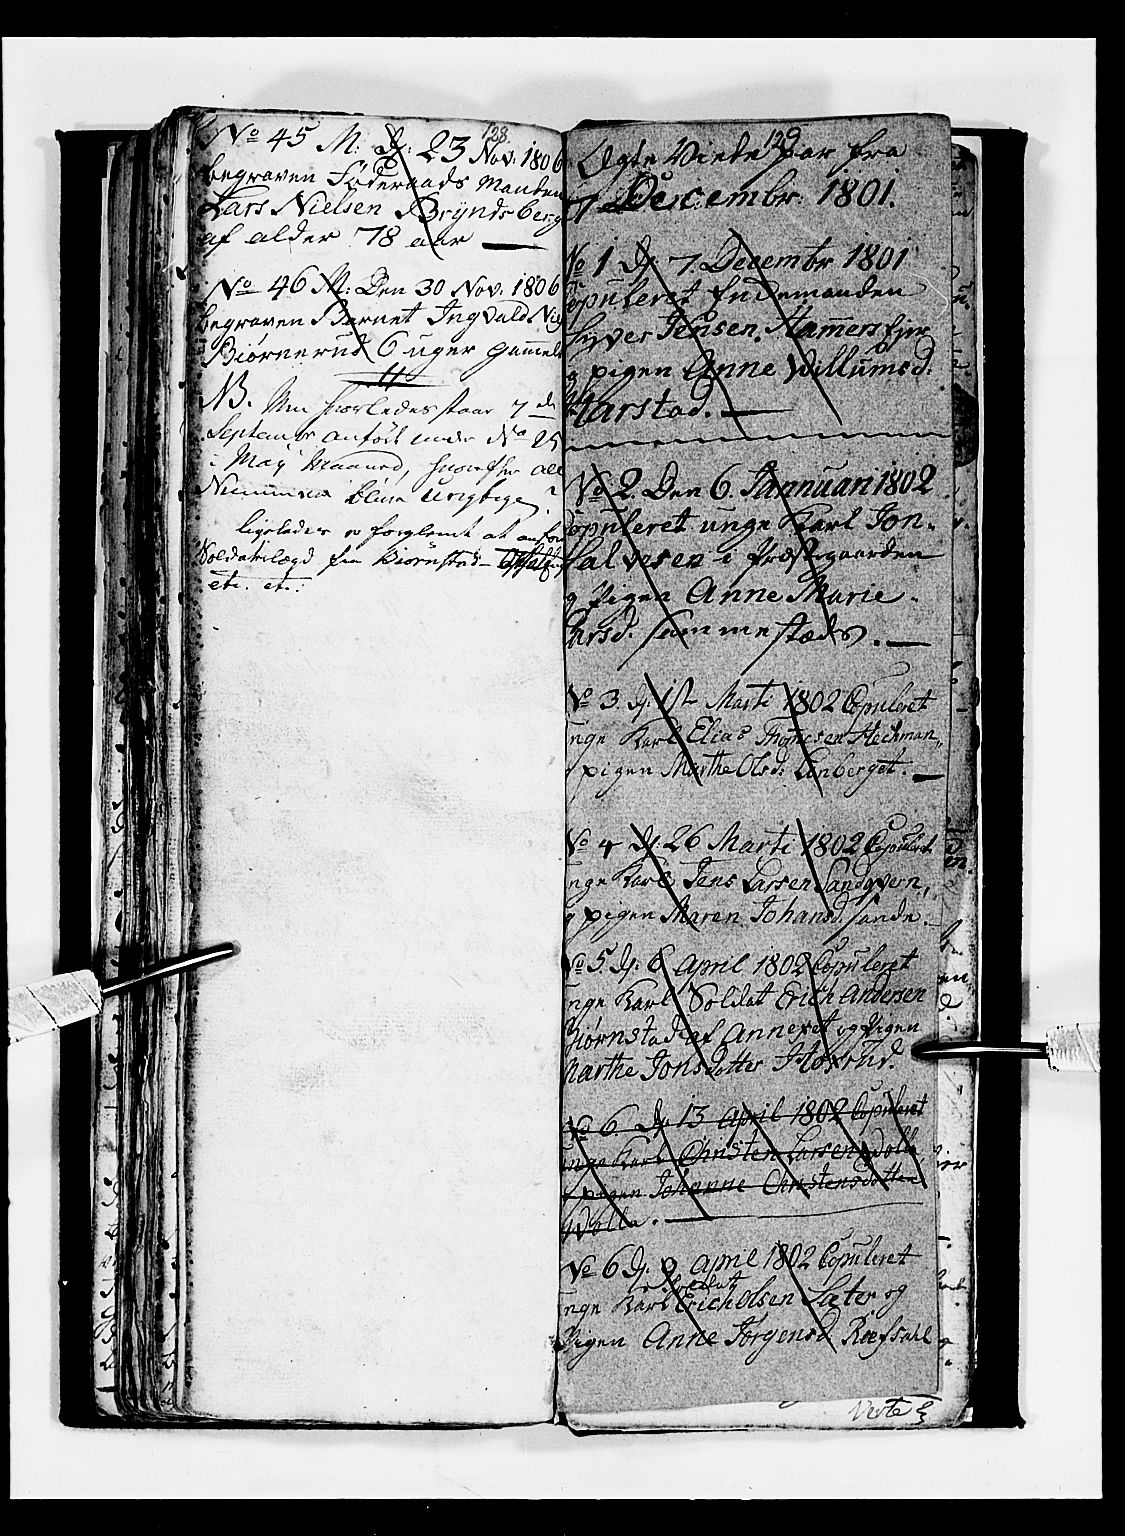 128
No 45 M: Dj. 23 Nov: 1806
begraven Föderaads Manden
Lars Nielsen Bryndsberg
af alder 78 aar
No 46 M: Den 30 Nov. 1806
begraven Barnet Ingvald
Biørnerud 6 uger gammel
NB. staar 7 de
September anført under No 25
i May Maaned, hvorefter alle
Numrene blive urigtige
ligeledes er forglemt at anføre
Soldatelægd fra Biørnstad
etc. etc.
129
Ægte Viede Par fra
7 Decembr: 1801.
No 1 Dj 7. Decembr 1801
Copuleret Enkemanden
Syver Jensen. Hammersfjer
og pigen Anne Willumsd.
Harstad.
No 2. Den 6. Jannuari 1802
Copuleret unge Karl Jon
Halvesen i Præstegaarden
og Pigen Anne Marie
Larsd. sammestæds.
No 3. Dj. 1ste Marti 1802 Copuleret
unge Karl Elias Thomesen
pigen Marthe Olsd:
No 4 Dj. 26 Marti 1802 Copuleret
unge Karl Jens Larsen Sandgvern,
og pigen Maren Johansd. Sande.
No 5. Dj. 6 April 1802 Copuleret
unge Karl Soldat Erich Andersen
Biørnstad af Annexet og Pigen
Marthe Jonsdotter
No 6 Dj 13 April 1802 Copuleret
unge Karl Christen Larsen Wolla
pigen Johanne Christensdotter
Wolla.
No 6 Dj. 9 April 1802 Copuleret
unge Karl Erich Olsen Sæter og
Pigen Anne Jørgensd Roefsahl
Verte